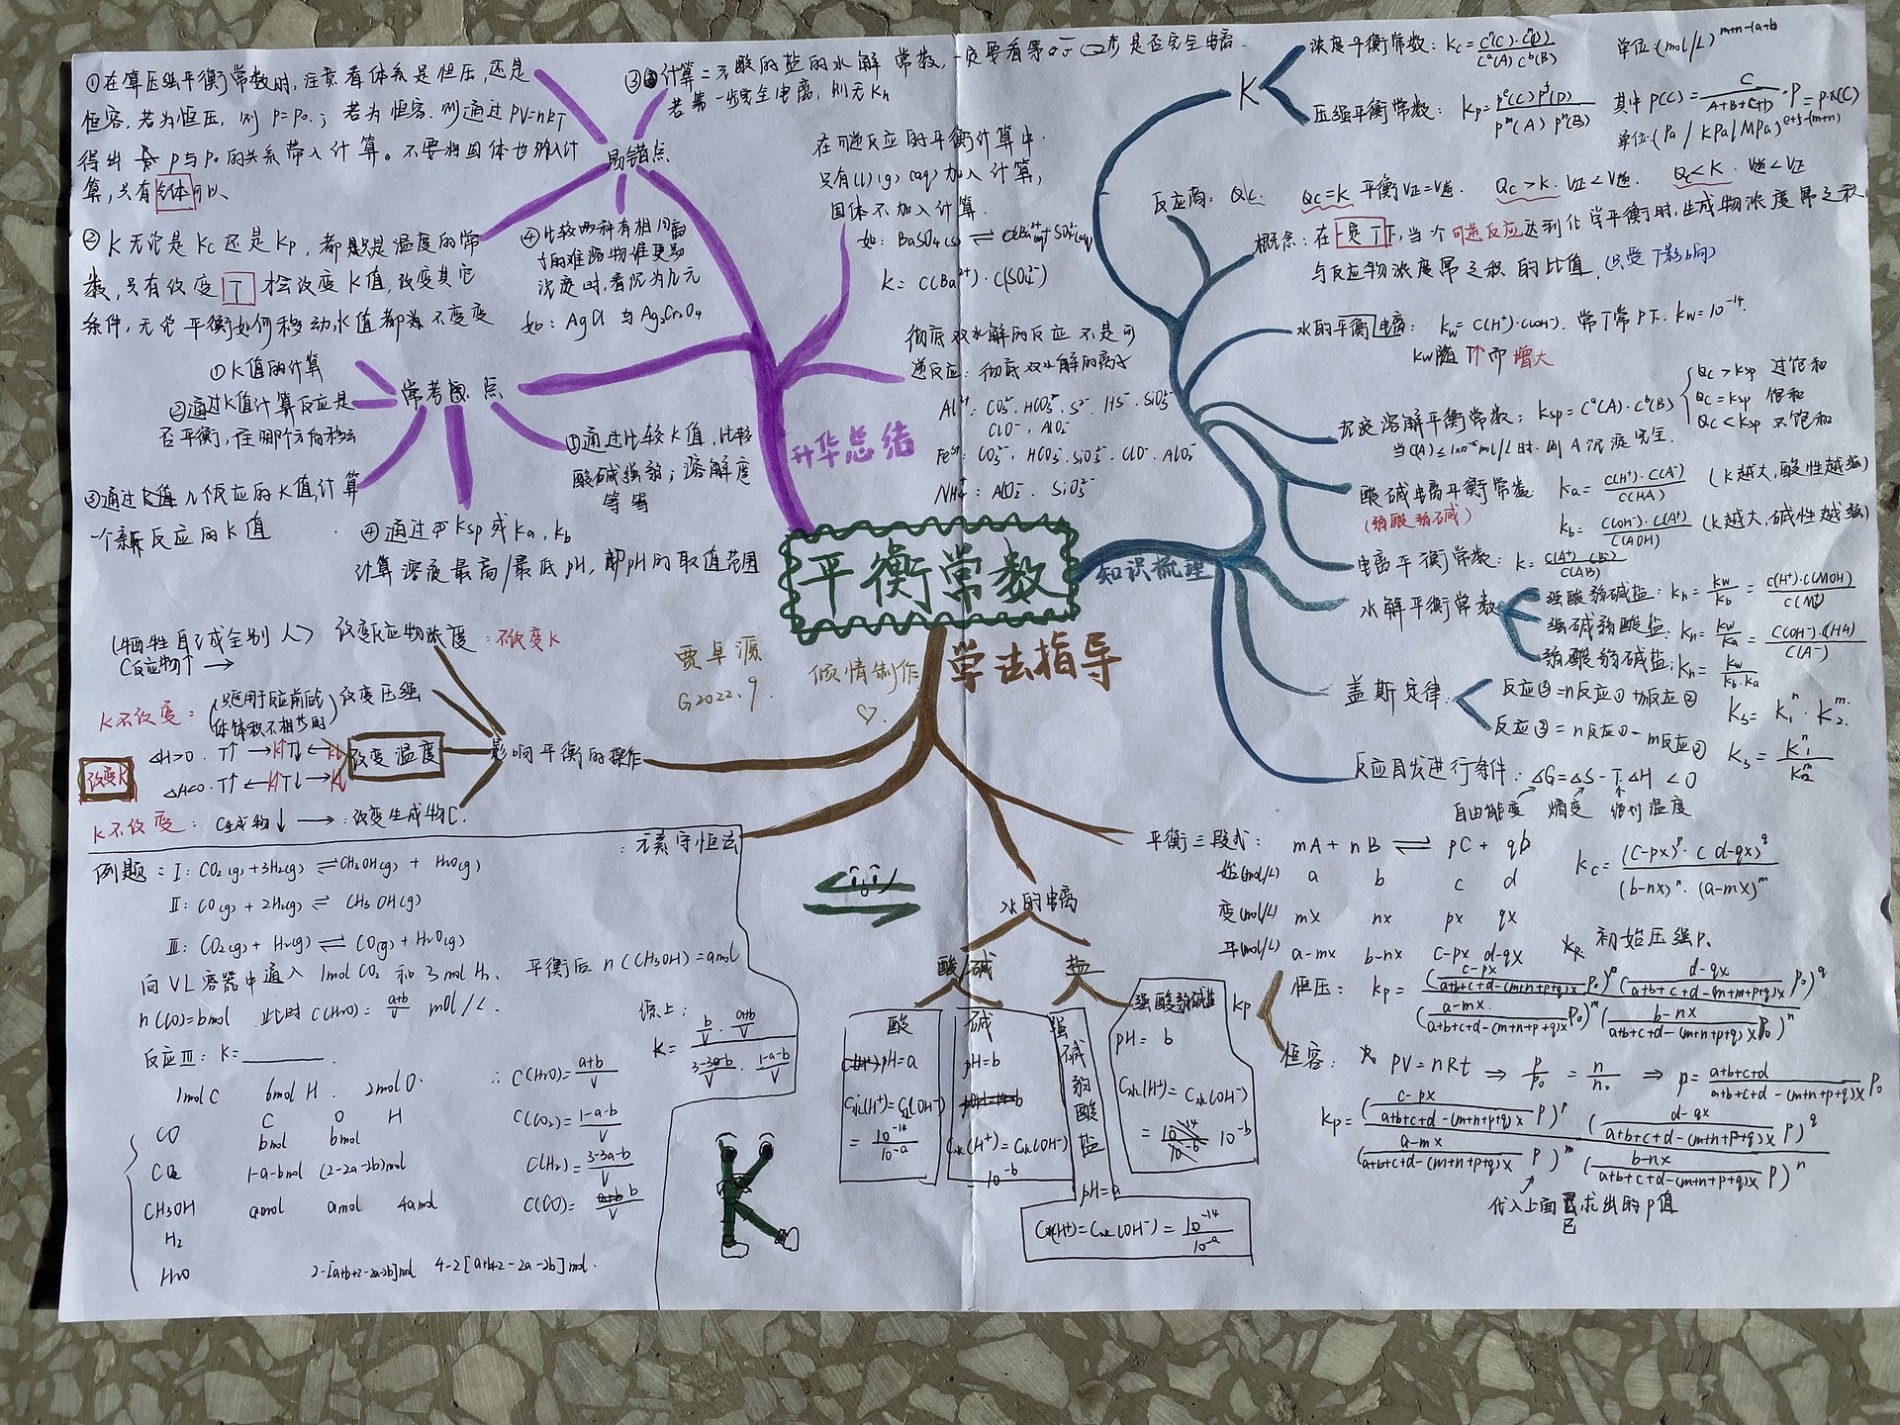 平衡常数
升华总结
易错点
①在算压强平衡常数时,注意看体系是恒压,还是
恒容,若为恒压,则P=P₀;若为恒容,则通过PV=nRT
得出P与P₀的关系带入计算。不要将固体也列入计
算,只有气体可以
②K无论是Kc还是Kp,都只是温度的常
数,只有改变T才会改变K值,改变其它
条件,无论平衡如何移动,K值都为不变
③计算二元酸的盐的水解常数,一定要看第一步是否完全电离.
若第一步完全电离,则无Kh
④比较两种有相同离
子的难溶物谁更易
沉淀时,看沉为几元
如:AgCl与Ag₂CrO₄
在可逆反应的平衡计算中.
只有(l)(g)(aq)加入计算,
固体不加入计算.
如:BaSO₄(s)⇌Ba²⁺(aq)+SO₄²⁻(aq)
K=C(Ba²⁺)·C(SO₄²⁻)
彻底双水解的反应不是可
逆反应:彻底双水解的离子
Al³⁺:CO₃²⁻.HCO₃⁻.S²⁻.HS⁻.SiO₃²⁻
ClO⁻.AlO₂⁻
Fe³⁺:CO₃²⁻.HCO₃⁻.SiO₃²⁻.ClO⁻.AlO₂⁻
NH₄⁺:AlO₂⁻.SiO₃²⁻
常考点
①K值的计算
②通过K值计算反应是
否平衡,在哪个方向移动
③通过几个反应的K值,计算
一个新反应的K值
④通过Ksp或Ka,Kb
计算溶液最高/最低pH,即pH的取值范围
⑤通过比较K值,比较
酸碱强弱;溶解度
等等
知识梳理
K
浓度平衡常数:Kc=
单位:(mol/L)
压强平衡常数:Kp=
其中P(C)=C/(A+B+C+D)·P=P·X(C)
单位:(Pa/KPa/MPa)
反应商:Qc: Qc=K 平衡V正=V逆. Qc>K.V正<V逆. Qc<K.V逆<V正
概念:在一定T下,当个可逆反应达到化学平衡时,生成物浓度幂之积
与反应物浓度幂之积的比值.(只受T影响)
水的平衡电离:Kw=C(H⁺)·C(OH⁻).常T常P下.Kw=10⁻¹⁴.
Kw随T↑而增大
沉淀溶解平衡常数:Ksp=Cᵃ(A)·Cᵇ(B)
Qc>Ksp 过饱和
Qc=Ksp 饱和
Qc<Ksp 不饱和
当C(A)≤1×10⁻⁵mol/L时.则A沉淀完全.
酸碱电离平衡常数 Ka=C(H⁺)·C(A⁻)/C(HA) (K越大,酸性越强)
(弱酸弱碱)
Kb=C(OH⁻)·C(A⁺)/C(AOH) (K越大,碱性越强)
电离平衡常数:K=C(A⁺)·C(B⁻)/C(AB)
水解平衡常数
强酸弱碱盐:Kh=Kw/Kb=C(H⁺)·C(MOH)/C(M⁺)
强碱弱酸盐:Kh=Kw/Ka=C(OH⁻)·C(HA)/C(A⁻)
弱酸弱碱盐:Kh=Kw/(Kb·Ka)
盖斯定律
反应③=n反应①+m反应② K₃=K₁ⁿ·K₂ᵐ
反应③=n反应①-m反应② K₃=K₁ⁿ/K₂ᵐ
反应自发进行条件:△G=△S-T.△H<0
自由能变 熵变 绝对温度
贾卓源 倾情制作
G2022.9.
学法指导
影响平衡的操作
(牺牲自己成全别人) 改变反应物浓度:不改变K
C反应物↑→
K不改变:(只适用于反应前后 改变压强
体体积不相等时)
改变温度
△H>0.T↑→K↑T↓←K↓
△H<0.T↑←K↓T↓→K↑
改变K
K不改变:C生成物↓→:改变生成物C.
元素守恒法
例题:I:CO₂(g)+3H₂(g)⇌CH₃OH(g)+H₂O(g)
II:CO(g)+2H₂(g)⇌CH₃OH(g)
III:CO₂(g)+H₂(g)⇌CO(g)+H₂O(g)
向VL容器中通入1molCO₂和3molH₂.平衡后n(CH₃OH)=amol
n(CO)=bmol.此时C(H₂O)=(a+b)/V mol/L.
反应III:K=______.
1molC 6molH 2molO.
C O H
CO bmol bmol
CO₂ 1-a-bmol (2-2a-2b)mol
CH₃OH amol amol 4amol
H₂
H₂O 2-[a+b+2-2a-2b]mol 4-2[a+b+2-2a-2b]mol.
∴C(H₂O)=(a+b)/V
C(CO₂)=(1-a-b)/V
C(H₂)=(3-3a-b)/V
C(CO)=b/V
综上:
K=(b/V·(a+b)/V)/((3-3a-b)/V·(1-a-b)/V)
K
水的电离
酸/碱
盐
酸
pH=a
C水(H⁺)=C水(OH⁻)
=10⁻¹⁴/10⁻ᵃ
碱
pH=b
C水(H⁺)=C水(OH⁻)
=10⁻ᵇ
强碱弱酸盐
pH=a
C水(H⁺)=C水(OH⁻)=10⁻¹⁴/10⁻ᵃ
强酸弱碱盐
pH=b
C水(H⁺)=C水(OH⁻)
=10⁻ᵇ
平衡三段式: mA+nB⇌pC+qD
始(mol/L) a b c d
变(mol/L) mx nx px qx
平(mol/L) a-mx b-nx c-px d-qx
Kc=(c-px)ᵖ·(d-qx)^q/((b-nx)ⁿ·(a-mx)ᵐ)
初始压强P₀
Kp
恒压:Kp=((c-px)/(a+b+c+d-(m+n+p+q)x)P₀)ᵖ((d-qx)/(a+b+c+d-(m+n+p+q)x)P₀)^q/((a-mx)/(a+b+c+d-(m+n+p+q)x)P₀)ᵐ((b-nx)/(a+b+c+d-(m+n+p+q)x)P₀)ⁿ
恒容: PV=nRt⇒P/P₀=n/n₀⇒P=(a+b+c+d)/(a+b+c+d-(m+n+p+q)x)P₀
Kp=((c-px)/(a+b+c+d-(m+n+p+q)x)P)ᵖ((d-qx)/(a+b+c+d-(m+n+p+q)x)P)^q/((a-mx)/(a+b+c+d-(m+n+p+q)x)P)ᵐ((b-nx)/(a+b+c+d-(m+n+p+q)x)P)ⁿ
代入上面已求出的P值